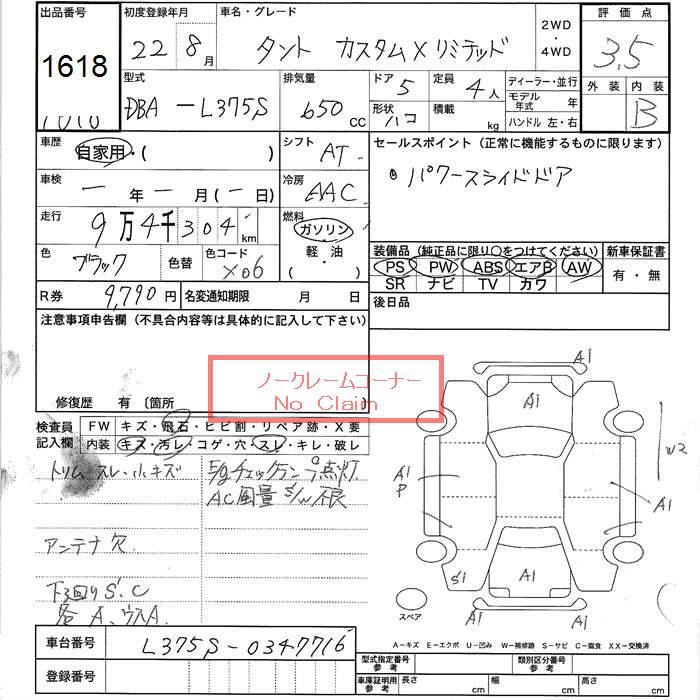 出品番号 初度登録年月 車名・グレード 2WD・4WD 評価点
1618 22 8月 タント カスタムXリミテッド 3.5
型式 DBA-L375S 排気量 650 CC ドア 5 定員 4人 ディーラー・並行 外装 内装 B
形状 ハコ 積載 kg モデル年式 年 ハンドル 左・右
車歴 自家用・( ) シフト AT セールスポイント (正常に機能するものに限ります)
車検 一年一月(一日) 冷房 AAC ・パワースライドドア
走行 9万4千304km 燃料 ガソリン・軽・油 ( )
色 ブラック 色替 色コード X06 装備品 (純正品に限り○をつけてください) 新車保証書
PS PW ABS エアB AW 有・無
SR ナビ TV カワ
R券 9,790円 名変通知期限 月 日 後日品
注意事項申告欄 (不具合内容等は具体的に記入して下さい)
ノークレームコーナー
No Claim
修復歴 有 〔箇所
検査員記入欄 FW キズ・飛石・ヒビ割・リペア跡・X要
内装 キズ・汚レ・コゲ・穴・スレ・キレ・破レ
トリムスレ・小キズ E/gチェックランプ点灯
AC風量S/W不良
アンテナ欠
下回りS.C
A1
A1
W2
A1
P
A1
S1
A1
A1
A1
スペア
A-キズ E-エクボ U-凹み W-補修跡 S-サビ C-腐食 XX-交換済
車台番号 L375S-0347716
登録番号
型式指定番号 参考 類別区分番号 参考
車庫証明用 参考 長さ cm 幅 cm 高さ cm